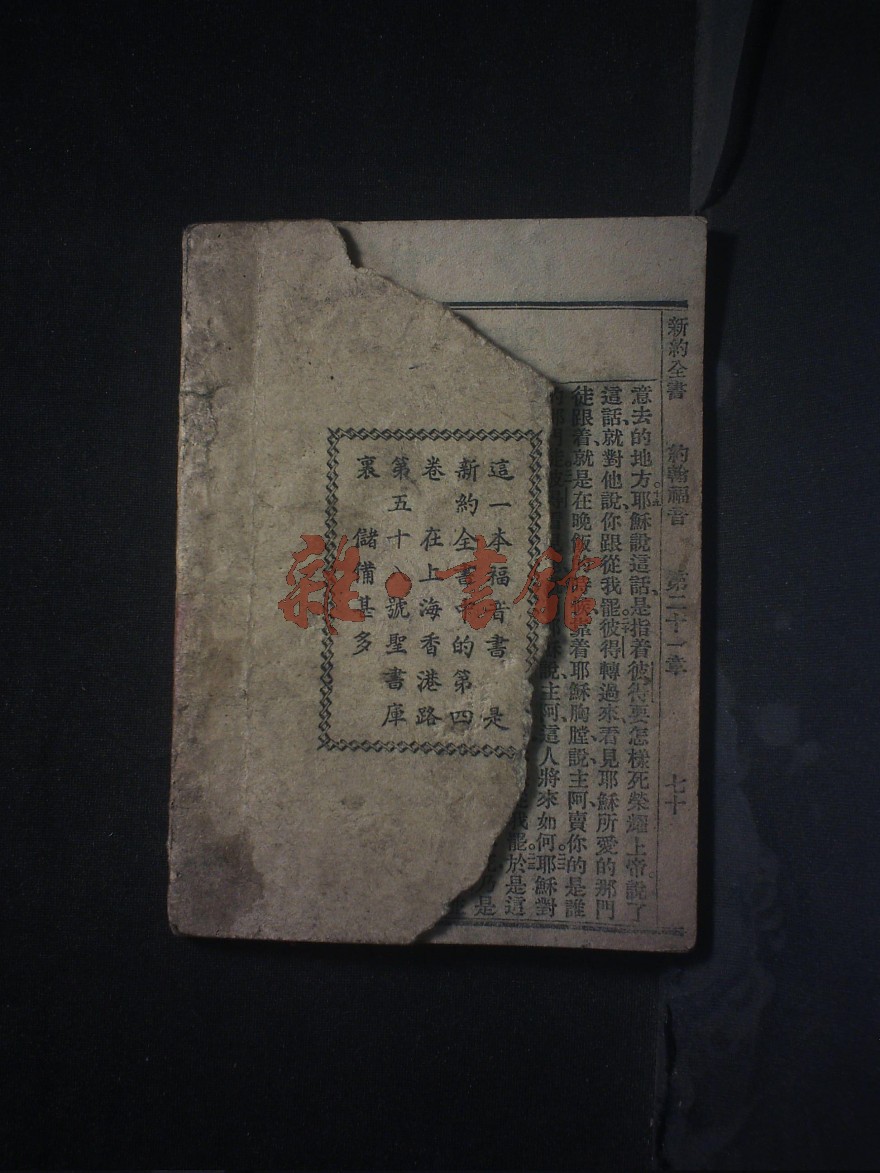 新約全書 約翰福音 第二十一章 七十
意去的地方。十九耶穌說這話、是指着彼得要怎樣死、榮耀上帝。說了
這話、就對他說、你跟從我罷。二十彼得轉過來、看見耶穌所愛的那門
徒跟着、就是在晚飯的時候、靠着耶穌胸膛說、主阿、賣你的是誰
說、主阿、這人將來如何。耶穌對
罷。於是這
是
這一本福音書 是
新約全書中的第四
卷 在上海香港路
第五十八號聖書庫
裏 儲備甚多
雜·書館